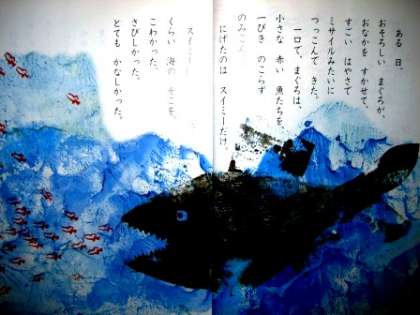 ある 日、
おそろしい まぐろが、
おなかを すかせて、
すごい はやさで
ミサイルみたいに
つっこんで きた。
一口で、まぐろは、
小さな 赤い 魚たちを、
一ぴき のこらず
のみこん
にげたのは スイミーだけ
スイミー
くらい 海の そこを。
こわかった。
さびしかった。
とても かなしかった。